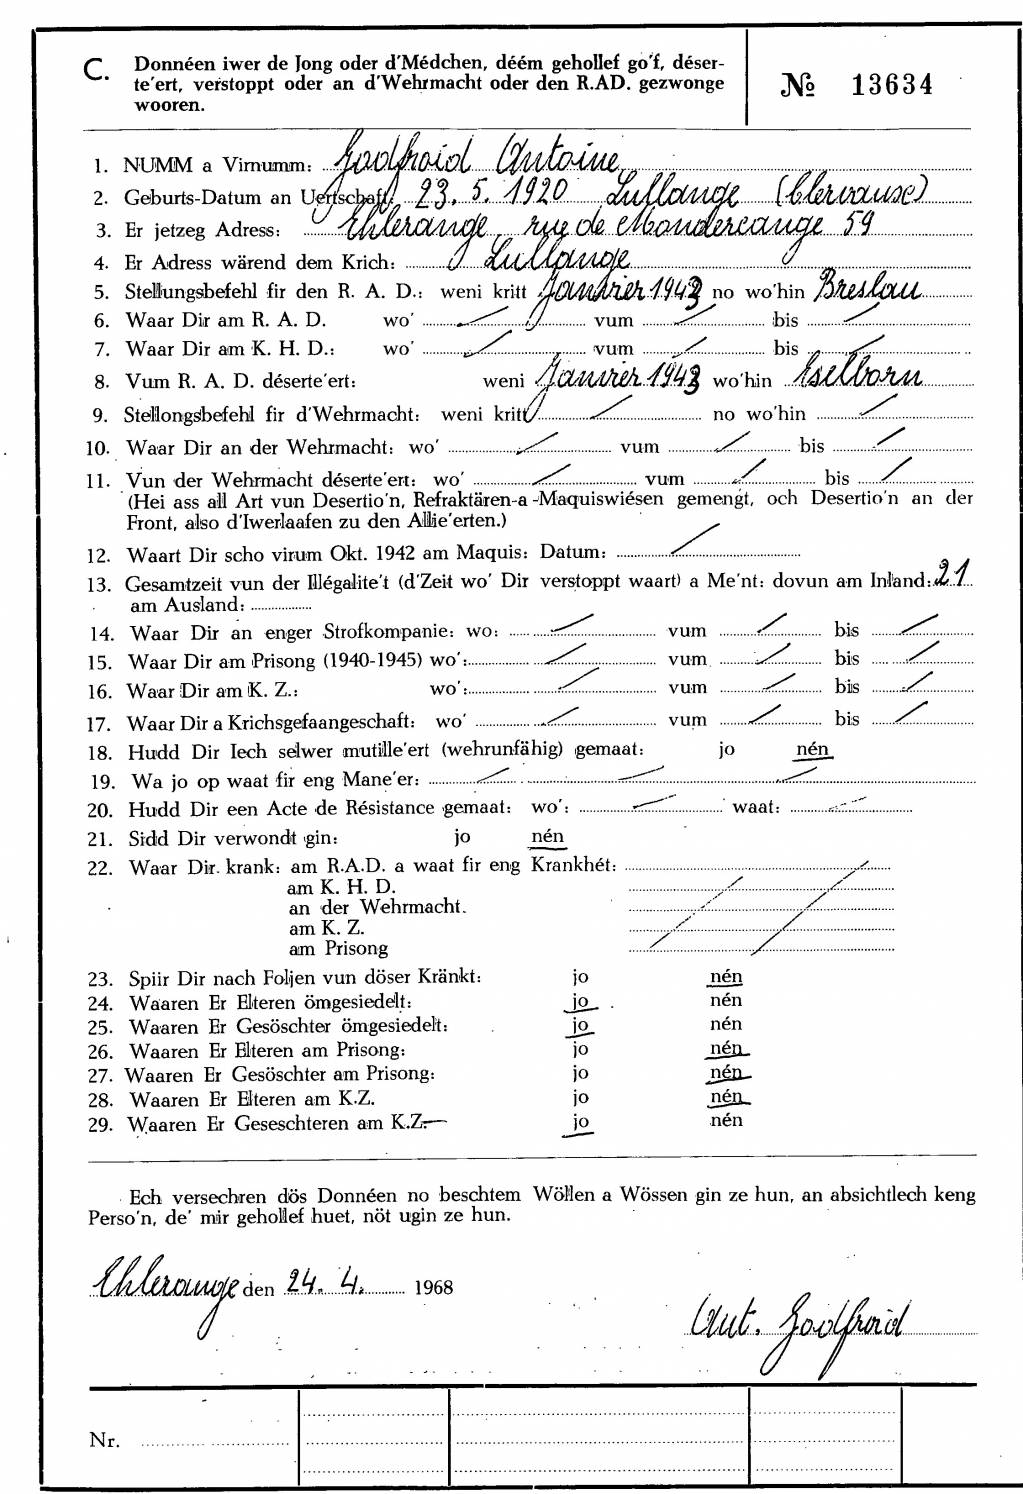 C. Donnéen iwer de Jong oder d'Médchen, déém gehollef go'f, déser-
te'ert, verstoppt oder an d'Wehrmacht oder den R.AD. gezwonge
wooren.
№ 13634
1. NUMM a Virnumm: Godfroid Antoine
2. Geburts-Datum an Uertschaft: 23. 5. 1920 Lullange (Clervause)
3. Er jetzeg Adress: Ehlerange, rue de Mondercange 59
4. Er Adress wärend dem Krich: Lullange
5. Stellungsbefehl fir den R. A. D.: weni kritt Janvier 1943 no wo'hin Breslau
6. Waar Dir am R. A. D. wo' / vum / bis /
7. Waar Dir am K. H. D.: wo' / vum / bis /
8. Vum R. A. D. déserte'ert: weni Janvier 1943 wo'hin Eselborn
9. Stellongsbefehl fir d'Wehrmacht: weni kritt / no wo'hin /
10. Waar Dir an der Wehrmacht: wo' / vum / bis /
11. Vun der Wehrmacht déserte'ert: wo' / vum / bis /
(Hei ass all Art vun Desertio'n, Refraktären-a -Maquiswiésen gemengt, och Desertio'n an der
Front, also d'Iwerlaafen zu den Allie'erten.)
12. Waart Dir scho virum Okt. 1942 am Maquis: Datum: /
13. Gesamtzeit vun der Illégalite't (d'Zeit wo' Dir verstoppt waart) a Me'nt: dovun am Inland: 21
am Ausland:
14. Waar Dir an enger Strofkompanie: wo: / vum / bis /
15. Waar Dir am Prisong (1940-1945) wo': / vum / bis /
16. Waar Dir am K. Z.: wo': / vum / bis /
17. Waar Dir a Krichsgefaangeschaft: wo' / vum / bis /
18. Hudd Dir Iech selwer mutille'ert (wehrunfähig) gemaat: jo nén
19. Wa jo op waat fir eng Mane'er: / / /
20. Hudd Dir een Acte de Résistance gemaat: wo': / waat: /
21. Sidd Dir verwondt gin: jo nén
22. Waar Dir krank: am R.A.D. a waat fir eng Krankhét:
am K. H. D.
an der Wehrmacht.
am K. Z.
am Prisong
23. Spiir Dir nach Foljen vun döser Kränkt: jo nén
24. Waaren Er Elteren ömgesiedelt: jo nén
25. Waaren Er Gesöschter ömgesiedelt: jo nén
26. Waaren Er Elteren am Prisong: jo nén
27. Waaren Er Gesöschter am Prisong: jo nén
28. Waaren Er Elteren am K.Z. jo nén
29. Waaren Er Geseschteren am K.Z. jo nén
Ech versechren dös Donnéen no beschtem Wöllen a Wössen gin ze hun, an absichtlech keng
Perso'n, de' mir gehollef huet, nöt ugin ze hun.
Ehlerange den 24. 4. 1968
Ant. Godfroid
Nr.